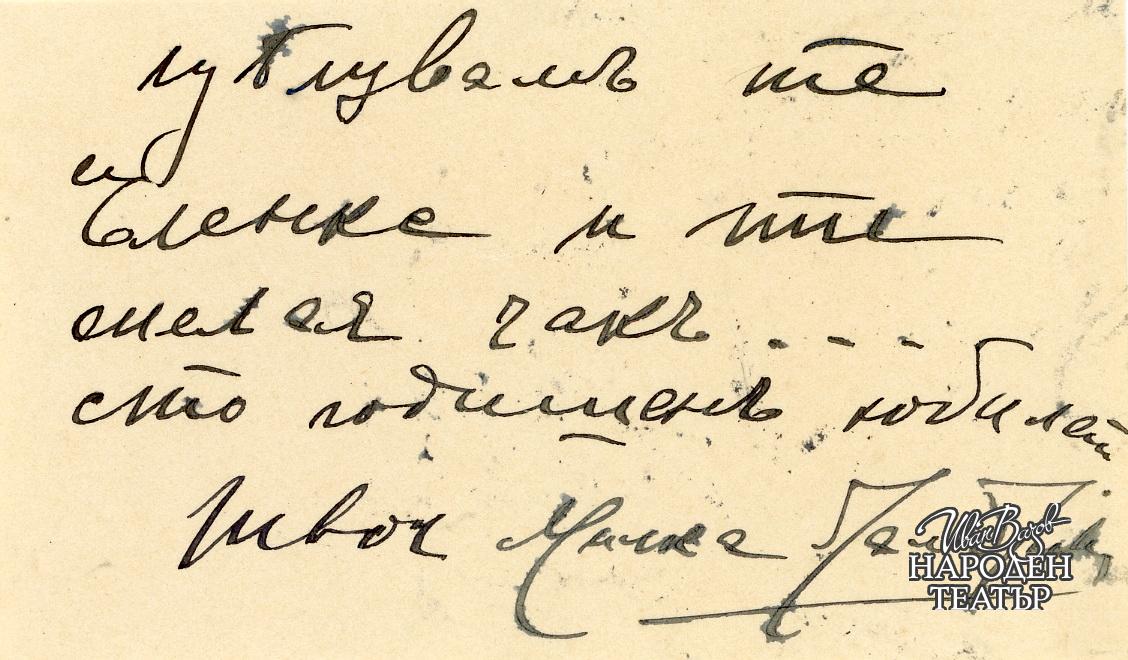 цѣлувамъ те
Еленке и те
желая чакъ . . .
сто годишенъ юбилей
твоя Милка
Иван Вазов
НАРОДЕН
ТЕАТЪР